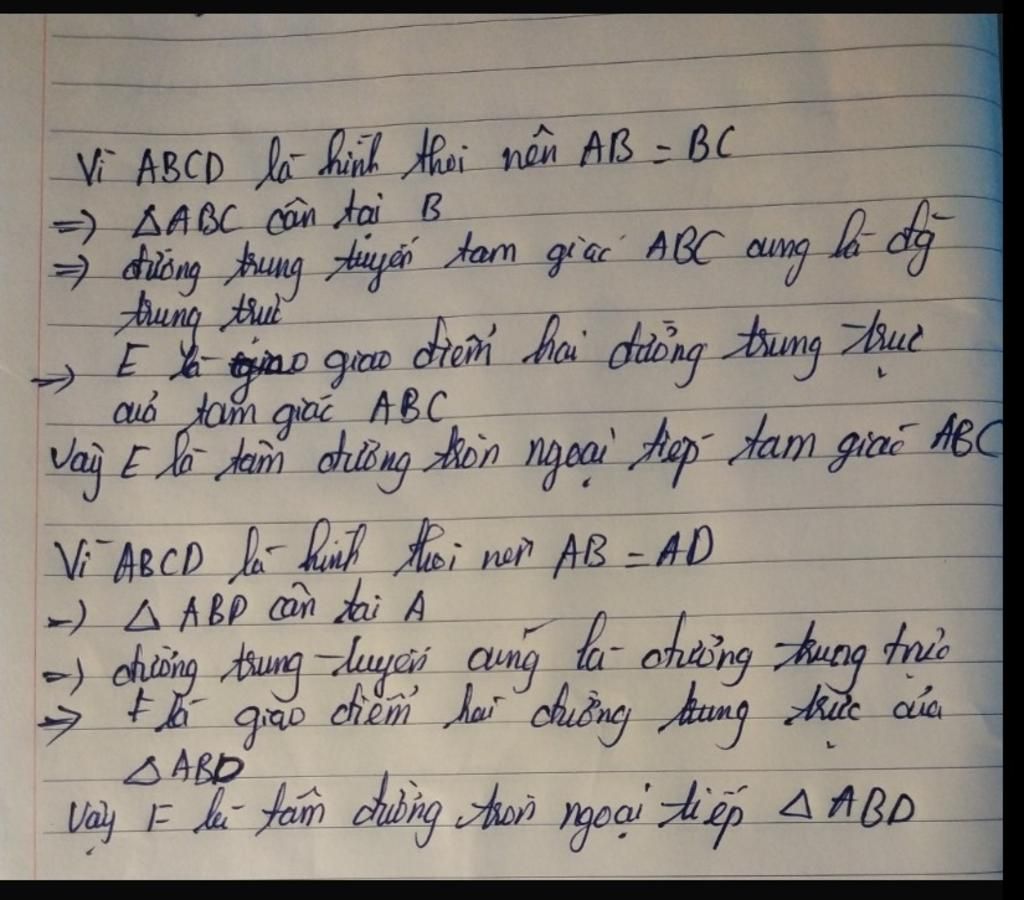 Vì ABCD là hình thoi nên AB = BC
=> △ABC cân tại B
=> đường trung tuyến tam giác ABC cung là đg
trung trực
=> E là giao giao điểm hai đường trung trực
cuả tam giác ABC
Vậy E là tâm đường tròn ngoại tiếp tam giác ABC
Vì ABCD là hình thoi nên AB = AD
=> △ ABD cân tại A
=> đường trung tuyến cũng là đường trung trực
=> F là giao điểm hai đường trung trực của
△ ABD
Vậy F là tâm đường tròn ngoại tiếp △ ABD